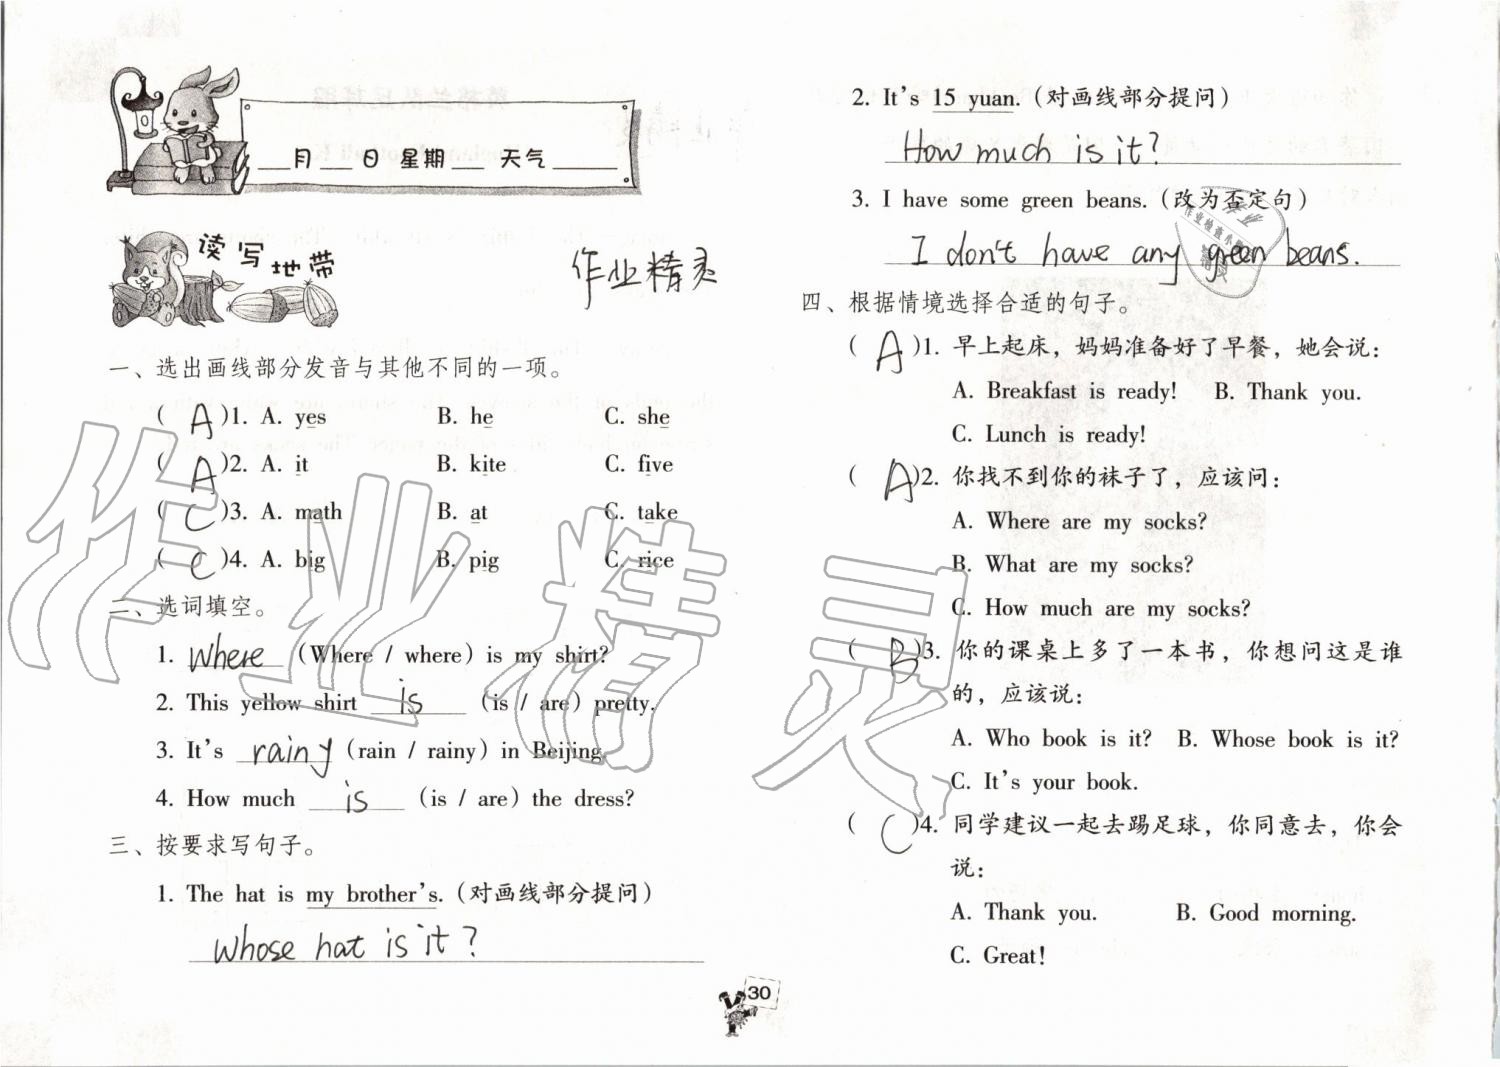 ___月___日 星期___ 天气______
读写地带
作业精灵
一、选出画线部分发音与其他不同的一项。
( A )1. A. yes B. he C. she
( A )2. A. it B. kite C. five
( C )3. A. math B. at C. take
( C )4. A. big B. pig C. rice
二、选词填空。
1. Where (Where / where) is my shirt?
2. This yellow shirt is (is / are) pretty.
3. It's rainy (rain / rainy) in Beijing.
4. How much is (is / are) the dress?
三、按要求写句子。
1. The hat is my brother's.(对画线部分提问)
Whose hat is it?
2. It's 15 yuan.(对画线部分提问)
How much is it?
3. I have some green beans.(改为否定句)
I don't have any green beans.
四、根据情境选择合适的句子。
( A )1. 早上起床，妈妈准备好了早餐，她会说：
A. Breakfast is ready! B. Thank you.
C. Lunch is ready!
( A )2. 你找不到你的袜子了，应该问：
A. Where are my socks?
B. What are my socks?
C. How much are my socks?
( B )3. 你的课桌上多了一本书，你想问这是谁
的，应该说：
A. Who book is it? B. Whose book is it?
C. It's your book.
( C )4. 同学建议一起去踢足球，你同意去，你会
说：
A. Thank you. B. Good morning.
C. Great!
30
作业精灵